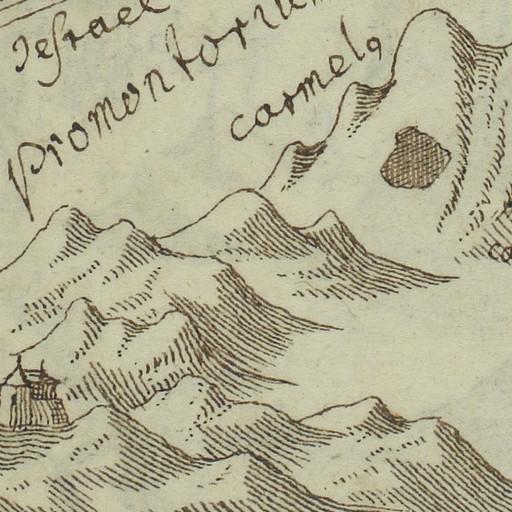 Jesrael
Promontorium
carmel9